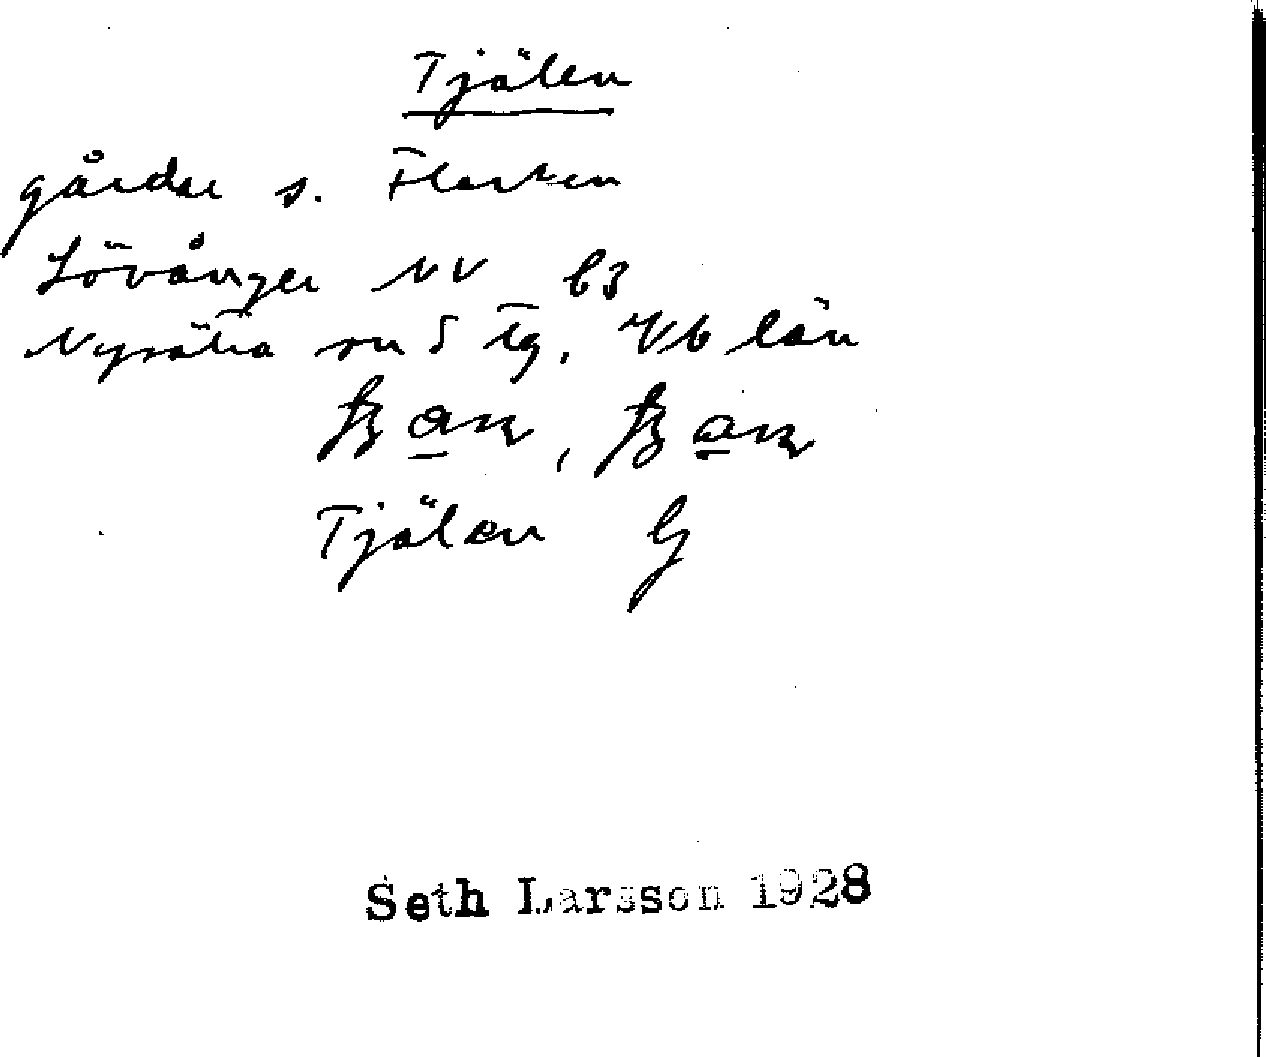 Tjälen
gårdar s. Flarken
Lövånger NV b3
Nysätra sn S tg. Vb län
Tjälen G
Seth Larsson 1928